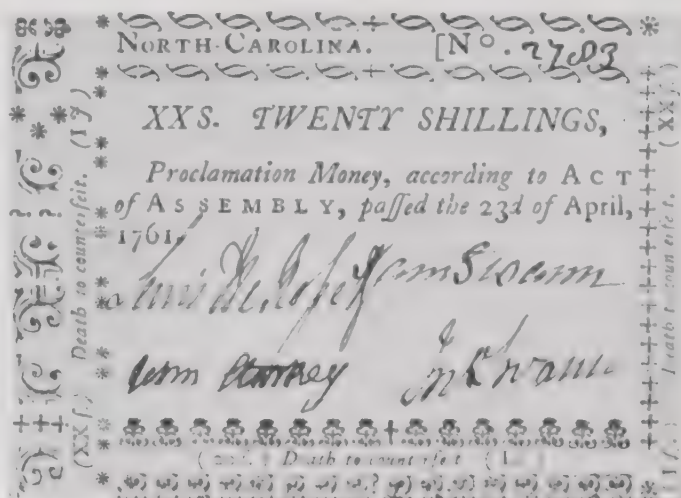 NORTH-CAROLINA. [No. 2783
XXS. TWENTY SHILLINGS,
Proclamation Money, according to ACT
of ASSEMBLY, paſſed the 23d of April,
1761.
Sam Swann
Jn Swann
Death to counterfeit. (I ſ)
(XXſ.)
Death to counterfeit
(XXſ.)
Death to counterfeit